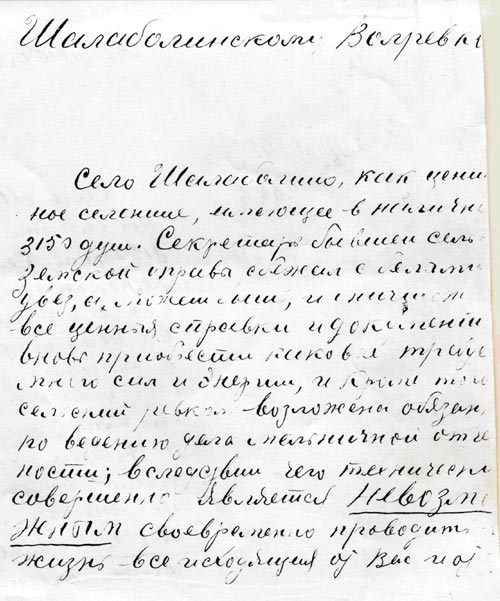 Шалаболинскому Волревк
Село Шалаболино, как цени
ное селение, имеющее в налич
3150 душ. Секретарь бывшей сель
земской управы сбежал с белыми
увез, а может быть, и уничтож
все ценныя справки и документ
вновь приобрести каковыя требуе
много сил и энергии, и кроме того
сельский ревком возложена обязан
по ведению дела мельничной отче
ности; вследствии чего техническ
совершенно является невозмо
жным своевременно проводить
жизнь все исходящия от Вас и от